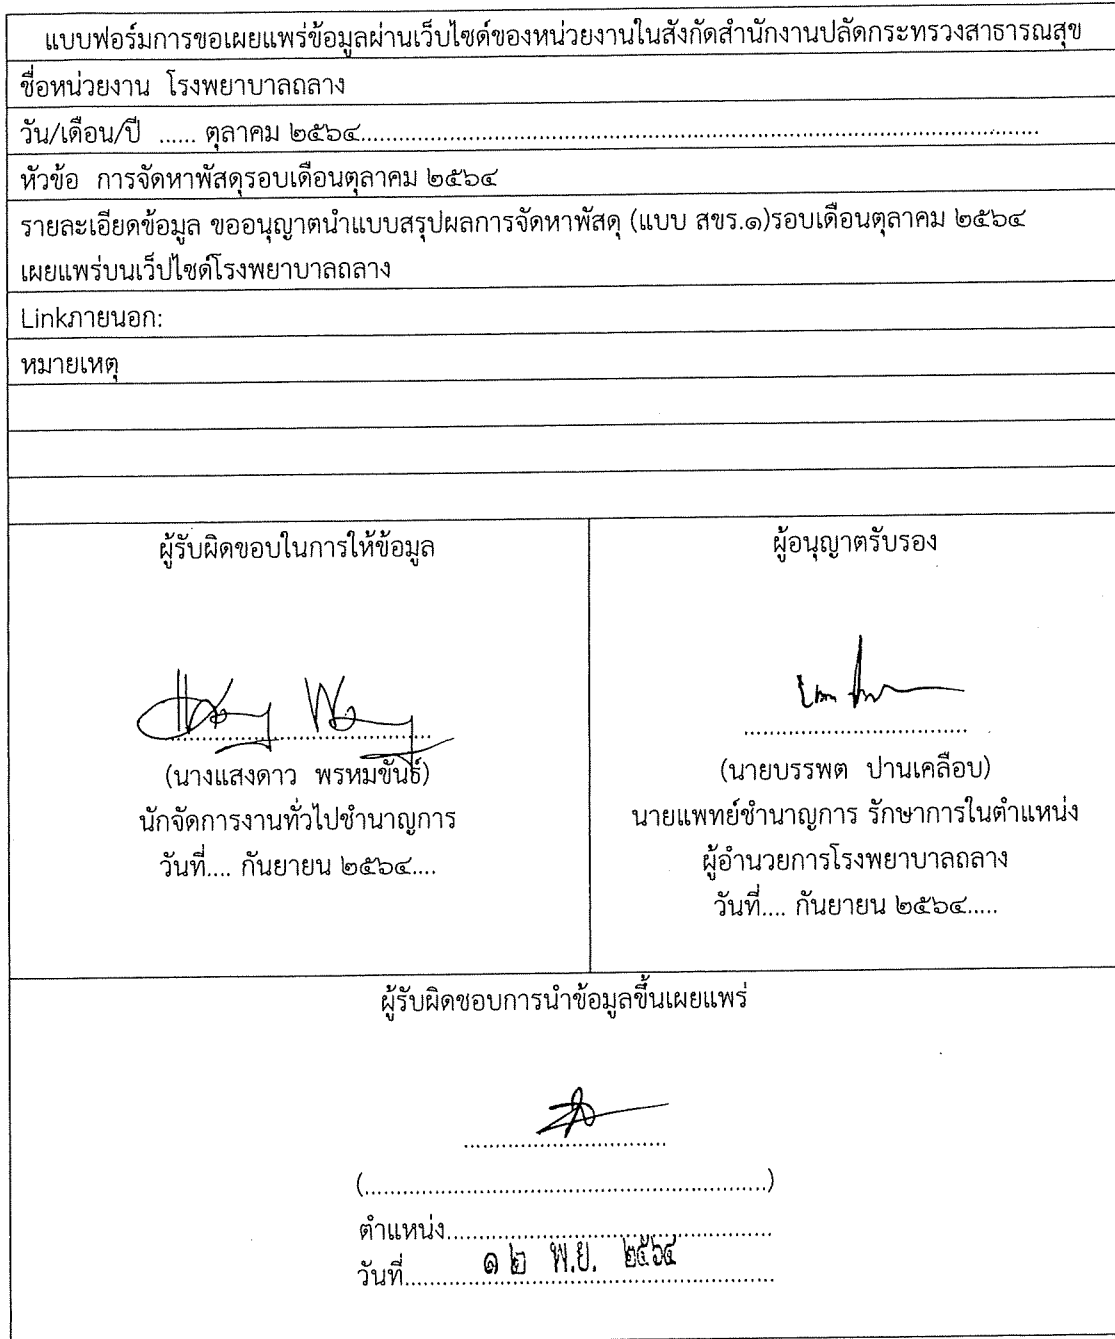 แบบฟอร์มการขอเผยแพร่ข้อมูลผ่านเว็บไซด์ของหน่วยงานในสังกัดสำนักงานปลัดกระทรวงสาธารณสุข
ชื่อหน่วยงาน โรงพยาบาลถลาง
วัน/เดือน/ปี ...... ตุลาคม ๒๕๖๔......................................................................................................
หัวข้อ การจัดหาพัสดุรอบเดือนตุลาคม ๒๕๖๔
รายละเอียดข้อมูล ขออนุญาตนำแบบสรุปผลการจัดหาพัสดุ (แบบ สขร.๑)รอบเดือนตุลาคม ๒๕๖๔
เผยแพร่บนเว็ปไซด์โรงพยาบาลถลาง
Linkภายนอก:
หมายเหตุ
ผู้รับผิดขอบในการให้ข้อมูล
(นางแสงดาว พรหมขันธ์)
นักจัดการงานทั่วไปชำนาญการ
วันที่.... กันยายน ๒๕๖๔....
ผู้อนุญาตรับรอง
(นายบรรพต ปานเคลือบ)
นายแพทย์ชำนาญการ รักษาการในตำแหน่ง
ผู้อำนวยการโรงพยาบาลถลาง
วันที่.... กันยายน ๒๕๖๔.....
ผู้รับผิดชอบการนำข้อมูลขึ้นเผยแพร่
(..........................................................)
ตำแหน่ง...............................................
วันที่ ๑๒ พ.ย. ๒๕๖๔